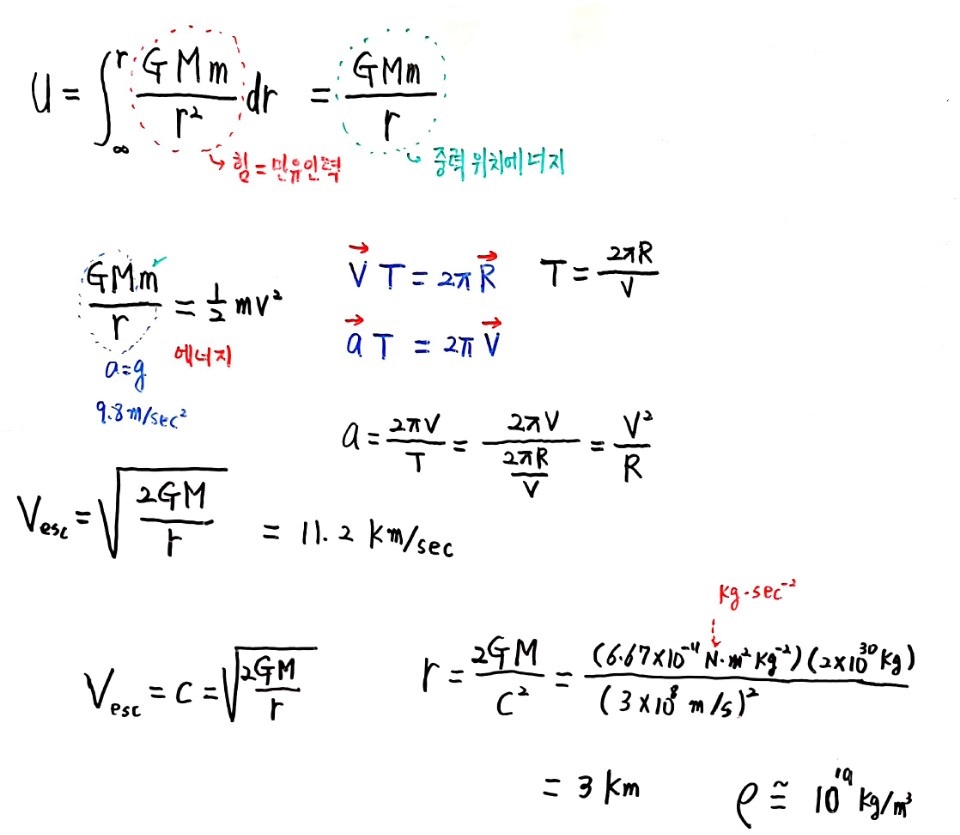 U = ∫_∞^r GMm/r² dr = GMm/r
힘 = 만유인력
중력 위치에너지
GMm/r = 1/2 mv²
a=g
에너지
9.8 m/sec²
V⃗ T = 2π R⃗
T = 2πR/V
a⃗ T = 2π V⃗
a = 2πV/T = 2πV/(2πR/V) = V²/R
V_esc = √(2GM/r) = 11.2 km/sec
V_esc = C = √(2GM/r)
kg·sec⁻²
r = 2GM/C² = (6.67×10⁻¹¹ N·m² kg⁻²)(2×10³⁰ kg)/(3×10⁸ m/s)²
= 3 km
ρ ≅ 10¹⁹ kg/m³